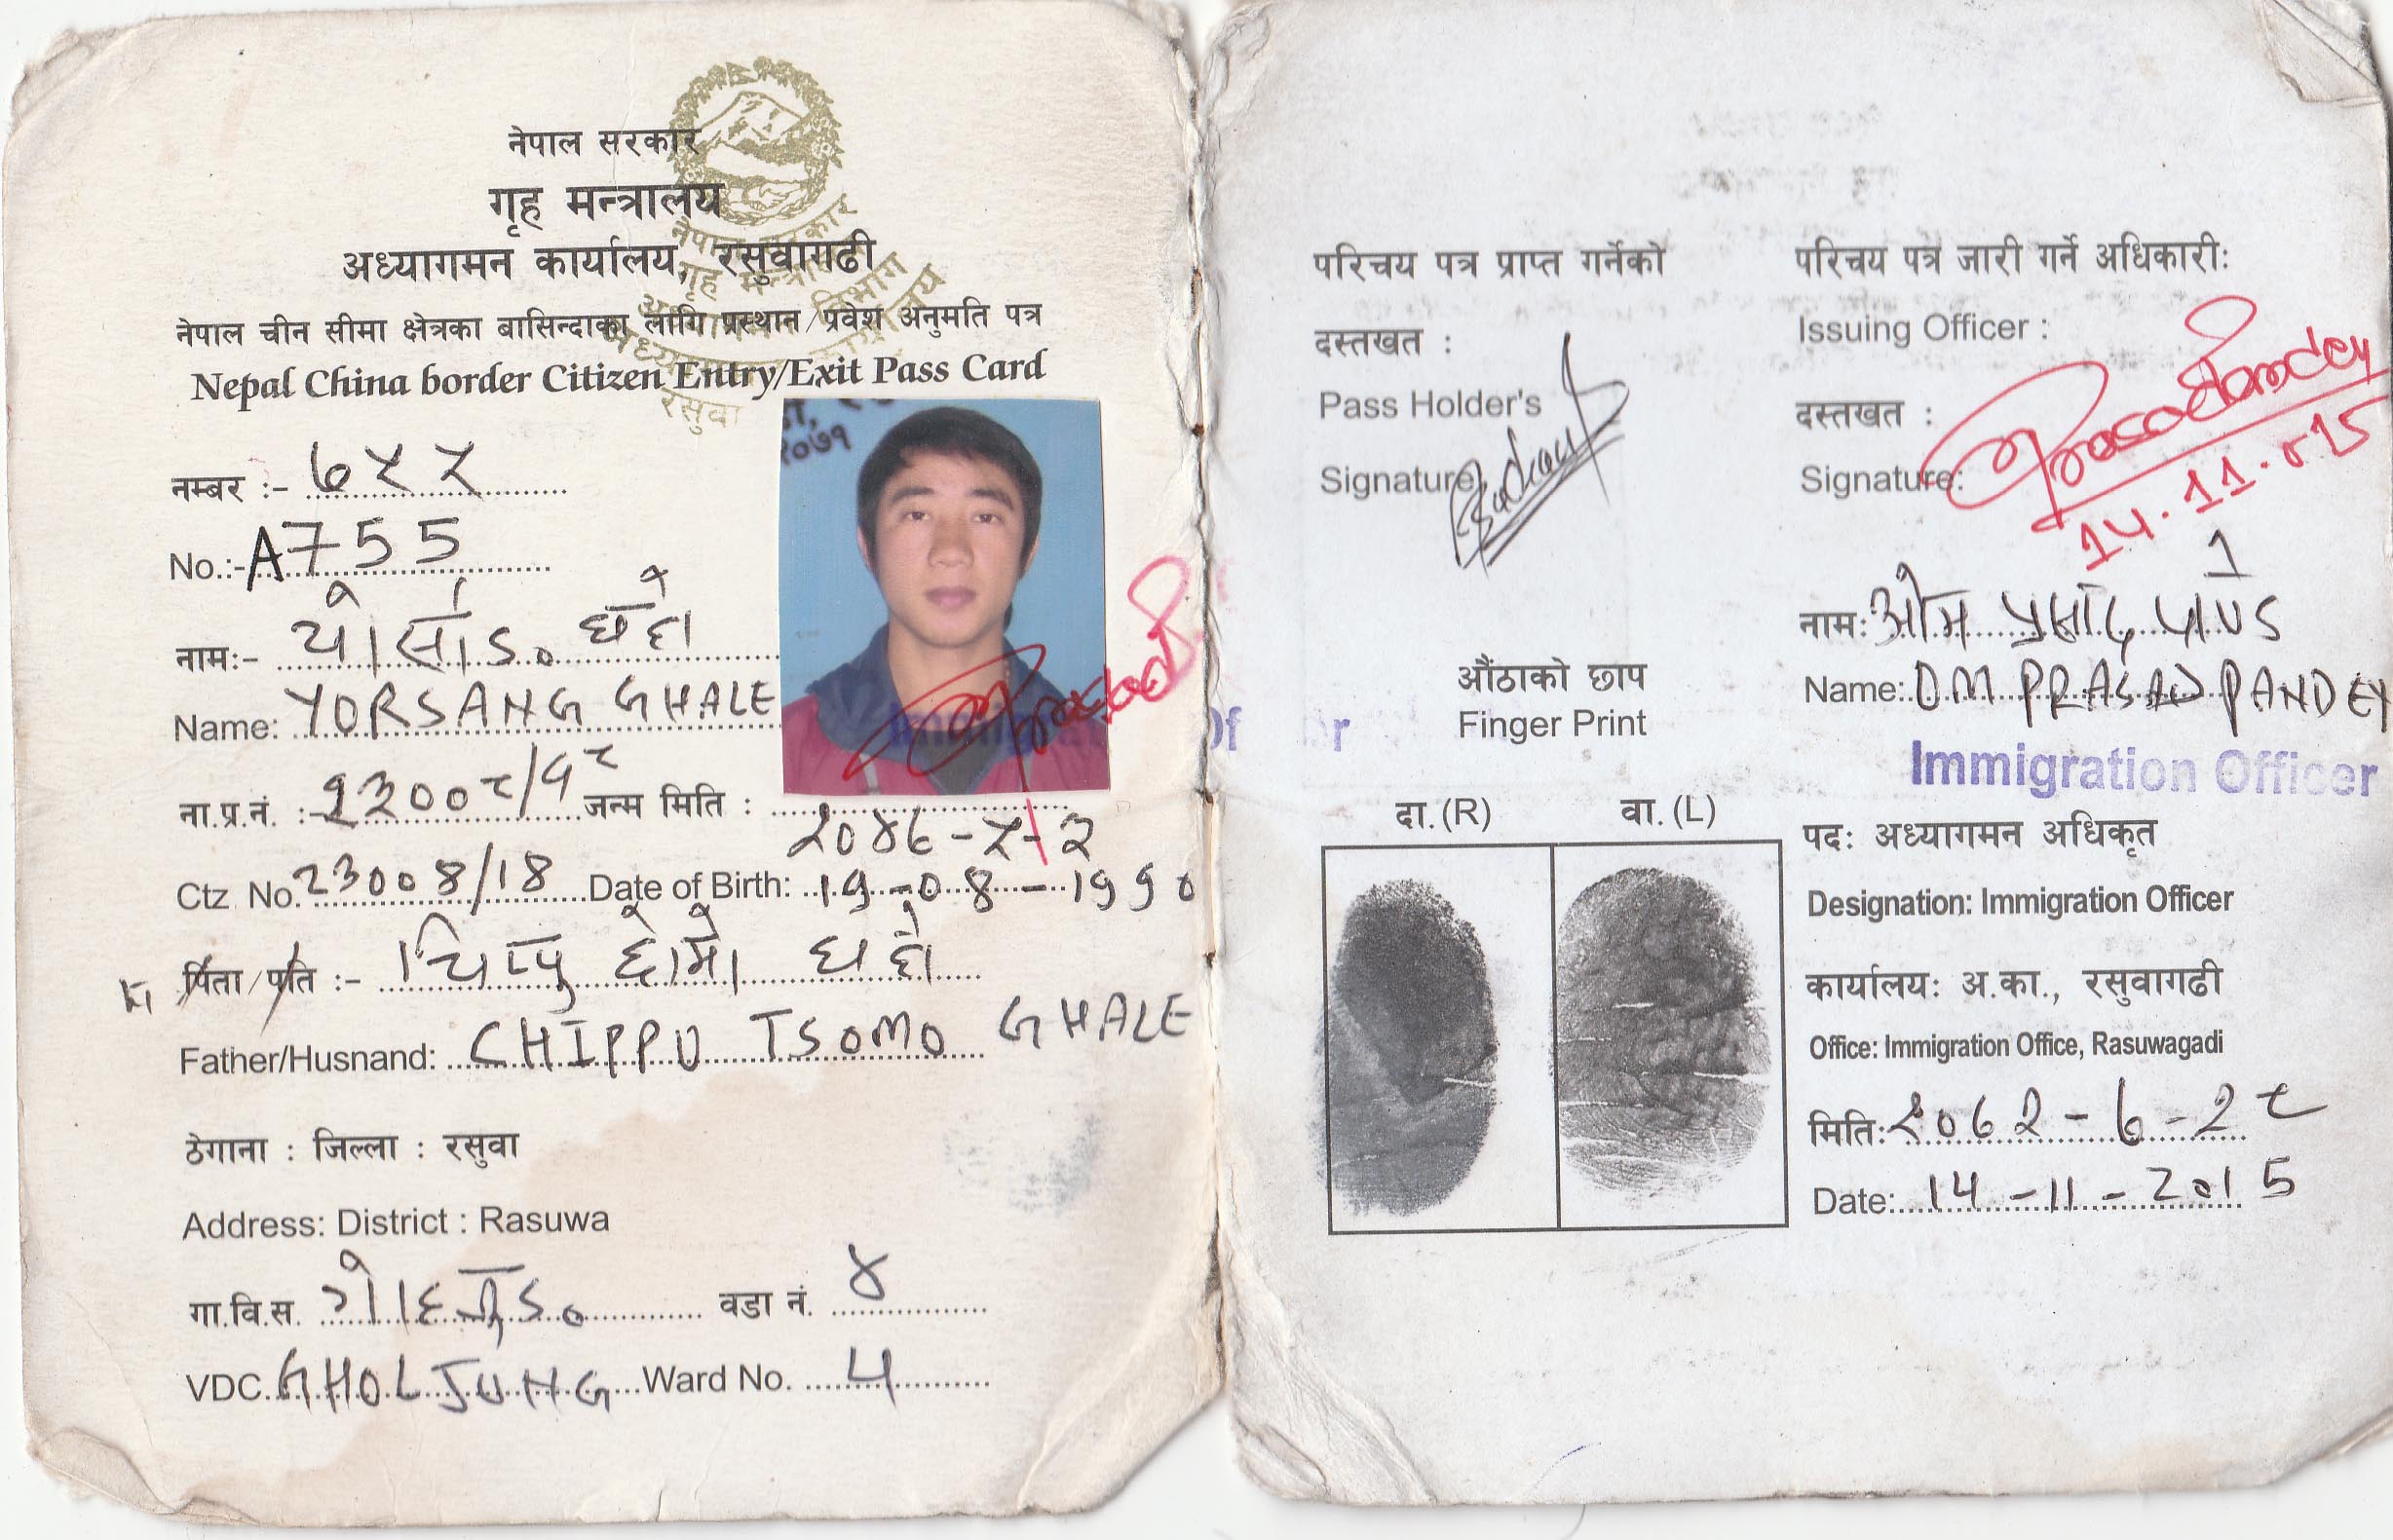 नेपाल सरकार
गृह मन्त्रालय
अध्यागमन कार्यालय, रसुवागढी
नेपाल चीन सीमा क्षेत्रका बासिन्दाका लागि प्रस्थान/प्रवेश अनुमति पत्र
Nepal China border Citizen Entry/Exit Pass Card
नम्बर :- ७५५
No.:- A755
नाम:- घले
Name: YORSANG GHALE
ना.प्र.नं. :- २३००८/१८ जन्म मिति :
२०४७-५-३
Ctz No. 23008/18 Date of Birth: 19-08-1990
पिता/पति :- छोमो घले
Father/Husnand: CHIPPU TSOMO GHALE
ठेगाना : जिल्ला : रसुवा
Address: District : Rasuwa
गा.वि.स. वडा नं. ४
VDC. GHOLJUNG Ward No. 4
२०७१
नेपाल सरकार
गृह मन्त्रालय
रसुवा
Immigration Of
परिचय पत्र प्राप्त गर्नेको
दस्तखत :
Pass Holder's
Signature
औंठाको छाप
Finger Print
दा. (R) वा. (L)
परिचय पत्र जारी गर्ने अधिकारी:
Issuing Officer :
दस्तखत :
Signature:
14.11.015
नाम: ओम प्रसाद पाण्डे
Name: OM PRASAD PANDEY
Immigration Officer
पद: अध्यागमन अधिकृत
Designation: Immigration Officer
कार्यालय: अ.का., रसुवागढी
Office: Immigration Office, Rasuwagadi
मिति: २०७२-७-२८
Date: 14-11-2015